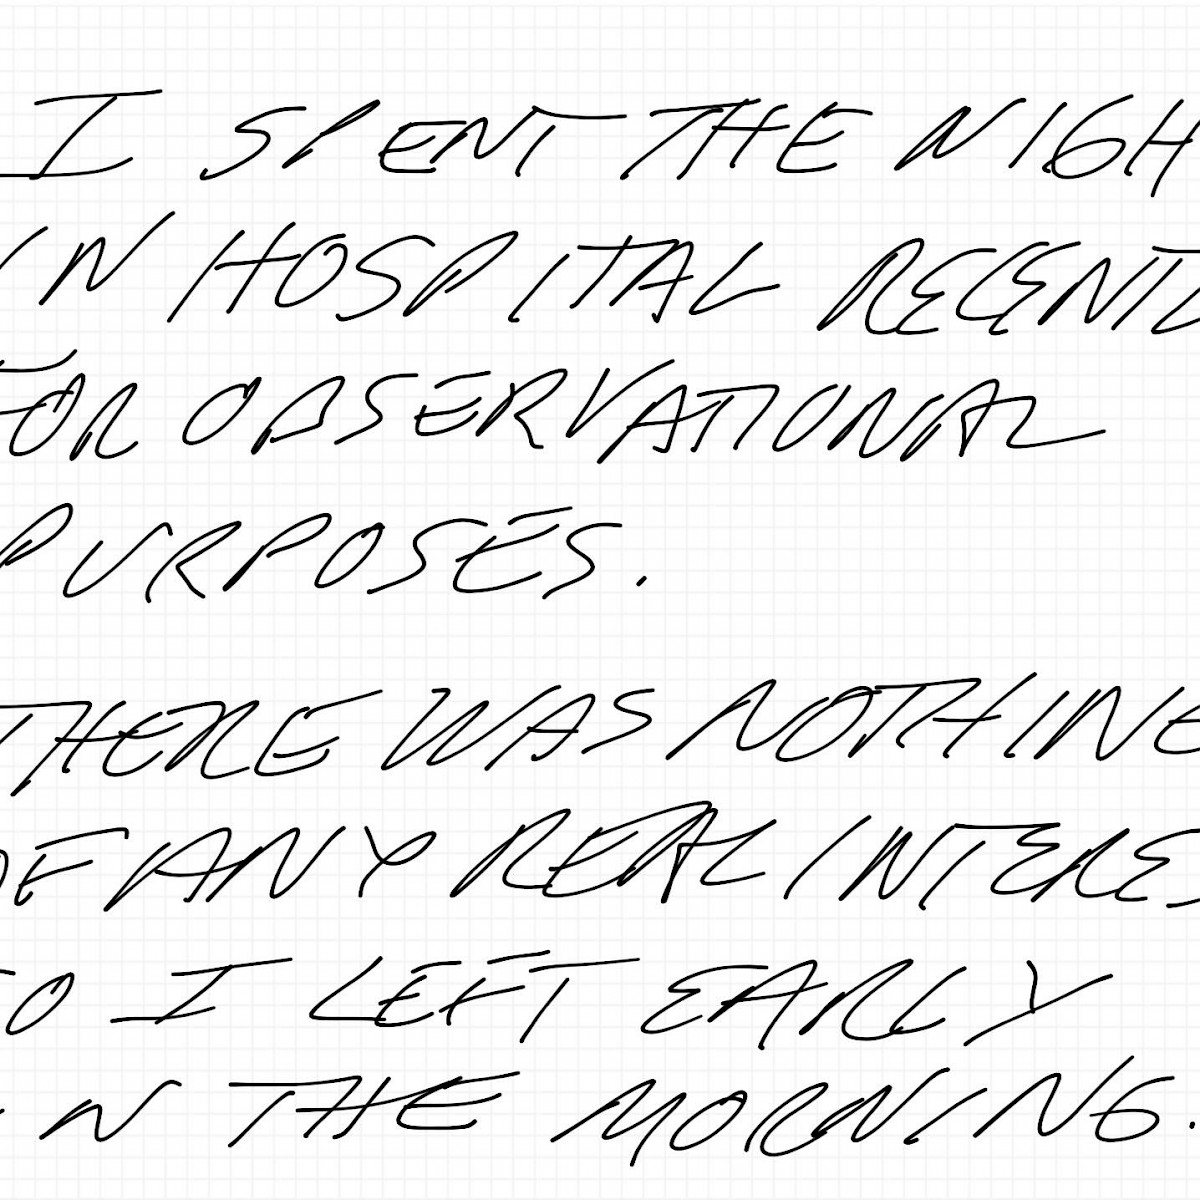 I SPENT THE NIGH
IN HOSPITAL RECENTL
FOR OBSERVATIONAL
PURPOSES.
THERE WAS NOTHING
OF ANY REAL INTERES
SO I LEFT EARLY
IN THE MORNING.